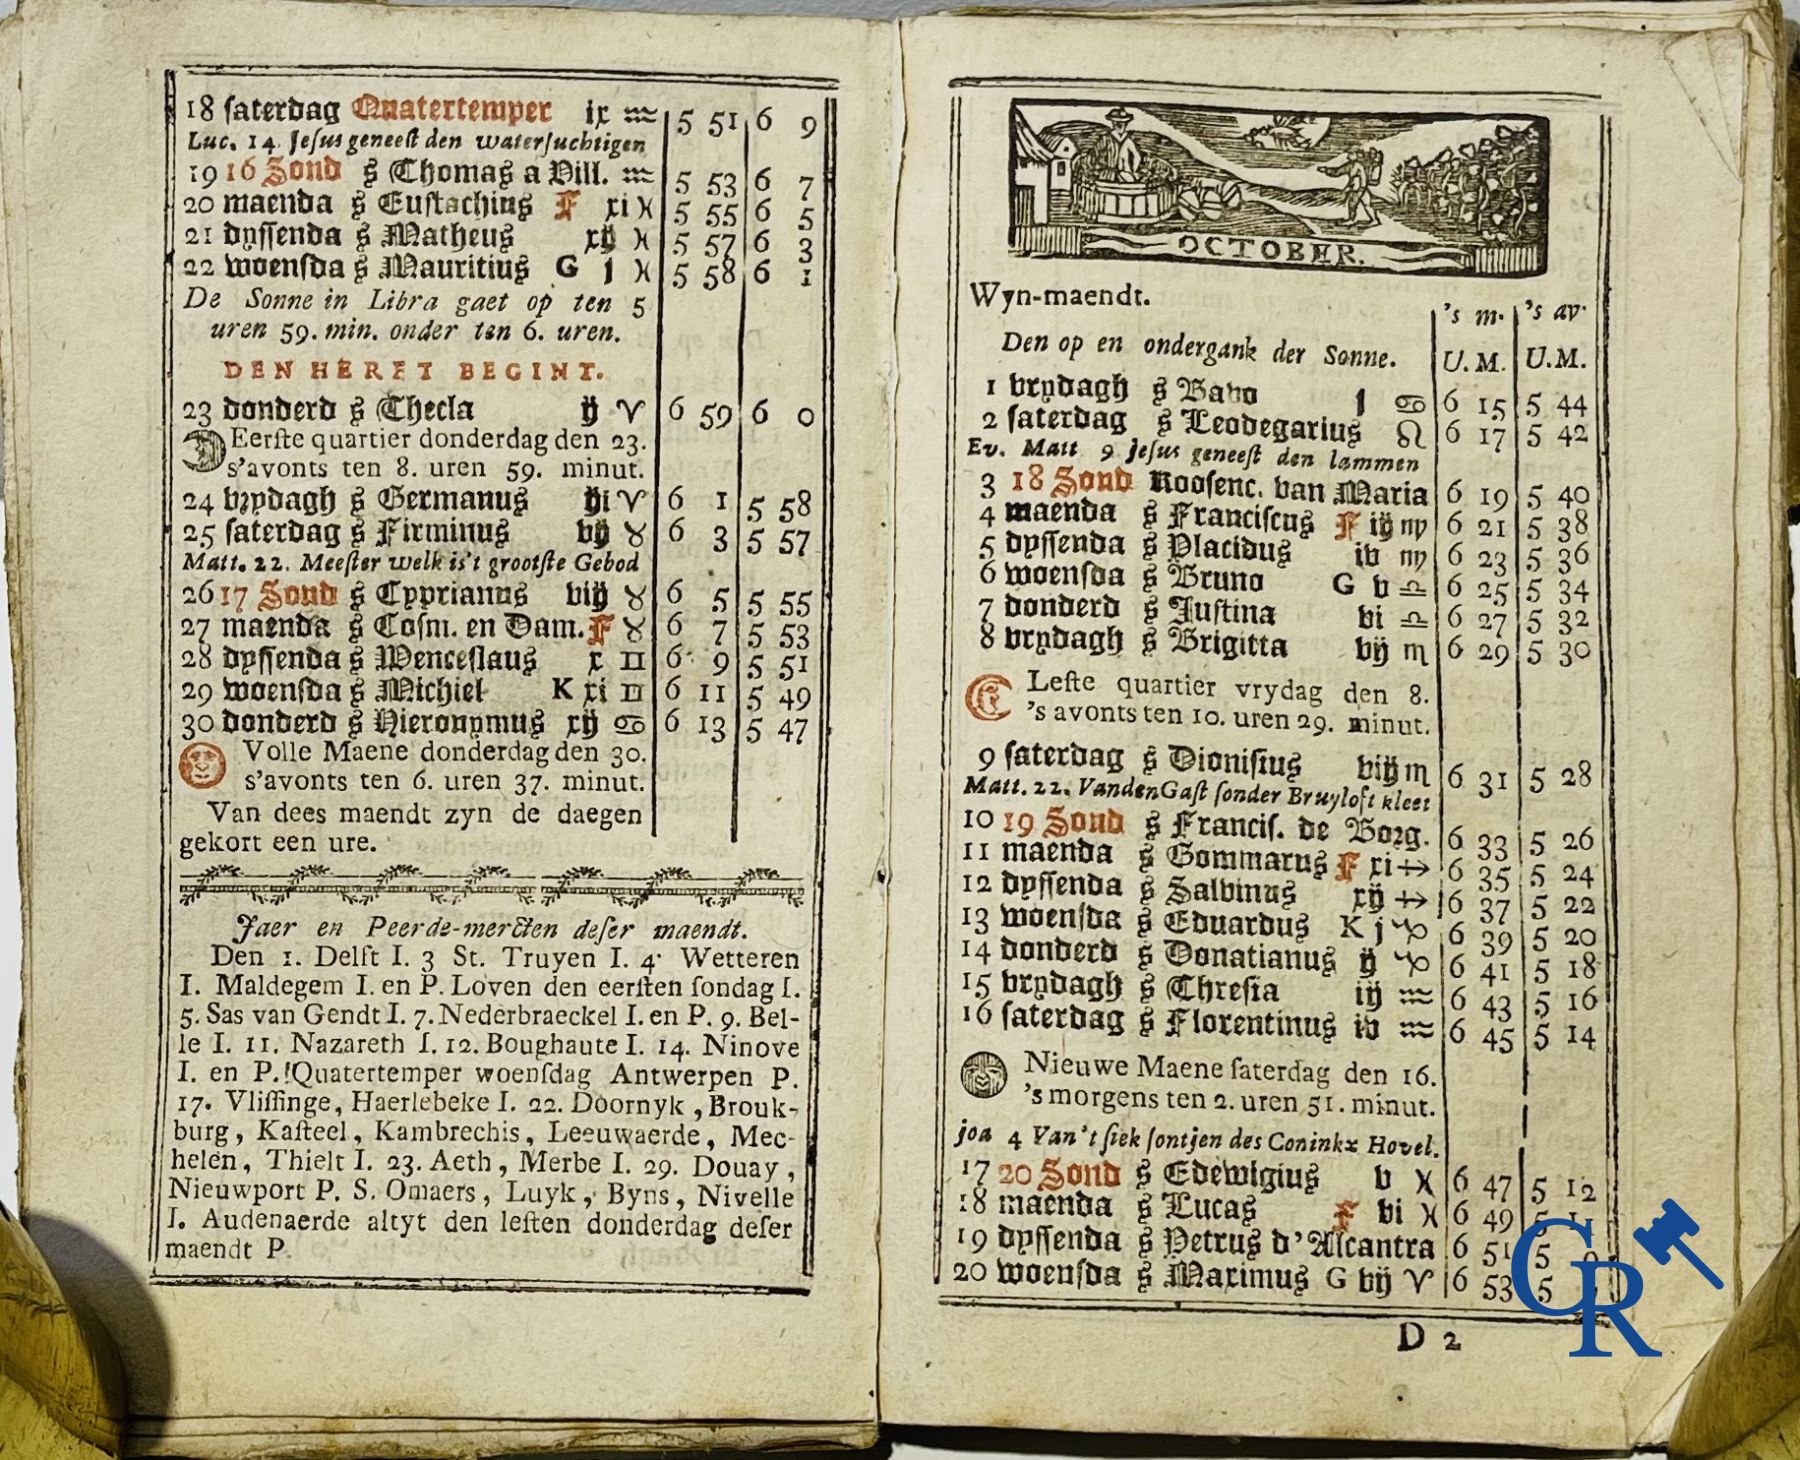 18 saterdag Quatertemper ix ♒ 5 51 6 9
Luc. 14. Jesus geneest den watersuchtigen
19 16 Sond s Thomas a Vill. ♒ 5 53 6 7
20 maenda s Eustachius F xi ♓ 5 55 6 5
21 dyssenda s Matheus xij ♓ 5 57 6 3
22 woensda s Mauritius G j ♓ 5 58 6 1
De Sonne in Libra gaet op ten 5
uren 59. min. onder ten 6. uren.
DEN HERFT BEGINT.
23 donderd s Thecla ij ♈ 6 59 6 0
Eerste quartier donderdag den 23.
s'avonts ten 8. uren 59. minut.
24 vrydagh s Germanus iji ♈ 6 1 5 58
25 saterdag s Firminus vij ♉ 6 3 5 57
Matt. 22. Meester welk is't grootste Gebod
26 17 Sond s Cyprianus viij ♉ 6 5 5 55
27 maenda s Cosm. en Dam. F ♉ 6 7 5 53
28 dyssenda s Wenceslaus x ♊ 6 9 5 51
29 woensda s Michiel K xi ♊ 6 11 5 49
30 donderd s Hieronymus xij ♋ 6 13 5 47
Volle Maene donderdag den 30.
s'avonts ten 6. uren 37. minut.
Van dees maendt zyn de daegen
gekort een ure.
Jaer en Peerde-mercten deser maendt.
Den 1. Delft I. 3 St. Truyen I. 4. Wetteren
I. Maldegem I. en P. Loven den eersten sondag I.
5. Sas van Gendt I. 7. Nederbraeckel I. en P. 9. Bel-
le I. 11. Nazareth I. 12. Boughaute I. 14. Ninove
I. en P. Quatertemper woensdag Antwerpen P.
17. Vlissinge, Haerlebeke I. 22. Doornyk, Brouk-
burg, Kasteel, Kambrechis, Leeuwaerde, Mec-
helen, Thielt I. 23. Aeth, Merbe I. 29. Douay,
Nieuwport P. S. Omaers, Luyk, Byns, Nivelle
I. Audenaerde altyt den lesten donderdag deser
maendt P.
OCTOBER.
Wyn-maendt.
's m. 's av.
Den op en ondergank der Sonne. U. M. U. M.
1 vrydagh s Bavo j ♋ 6 15 5 44
2 saterdag s Leodegarius ♌ 6 17 5 42
Ev. Matt 9 Jesus geneest den lammen
3 18 Sond Roosenc. van Maria 6 19 5 40
4 maenda s Franciscus F iij ♍ 6 21 5 38
5 dyssenda s Placidus iv ♍ 6 23 5 36
6 woensda s Bruno G v ♎ 6 25 5 34
7 donderd s Justina vi ♎ 6 27 5 32
8 vrydagh s Brigitta vij ♏ 6 29 5 30
Leste quartier vrydag den 8.
's avonts ten 10. uren 29. minut.
9 saterdag s Dionisius viij ♏ 6 31 5 28
Matt. 22. Van den Gast sonder Bruyloft kleet
10 19 Sond s Francis. de Borg. 6 33 5 26
11 maenda s Gommarus F xi ♐ 6 35 5 24
12 dyssenda s Salvinus xij ♐ 6 37 5 22
13 woensda s Eduardus K j ♑ 6 39 5 20
14 donderd s Donatianus ij ♑ 6 41 5 18
15 vrydagh s Thresia iij ♒ 6 43 5 16
16 saterdag s Florentinus iv ♒ 6 45 5 14
Nieuwe Maene saterdag den 16.
's morgens ten 2. uren 51. minut.
joa 4 Van't siek sontjen des Coninkx Hovel.
17 20 Sond s Edewigius v ♓ 6 47 5 12
18 maenda s Lucas F vi ♓ 6 49 5
19 dyssenda s Petrus d'Alcantra 6 51 5
20 woensda s Maximus G vij ♈ 6 53 5
D 2
CR